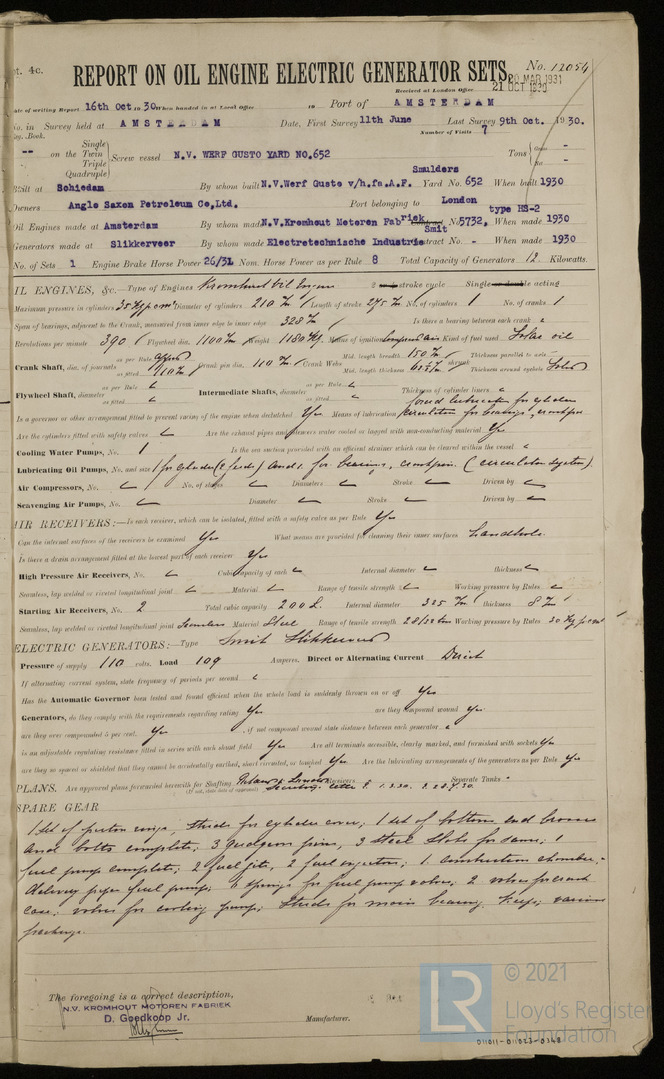 pt. 4c.
REPORT ON OIL ENGINE ELECTRIC GENERATOR SETS.
No. 12054
20 MAR 1931
Received at London Office 21 OCT 1930
Date of writing Report 16th Oct. 1930. When handed in at Local Office 19 Port of AMSTERDAM
No. in Survey held at AMSTERDAM Date, First Survey 11th June Last Survey 9th Oct. 1930.
Reg. Book. Number of Visits 7
-- on the Single Twin Triple Quadruple Screw vessel N.V. WERF GUSTO YARD NO.652 Tons Gross - Net -
Built at Schiedam By whom built N.V.Werf Gusto v/h.fa.A.F. Smulders Yard No. 652 When built 1930
Owners Anglo Saxon Petroleum Co,Ltd. Port belonging to London
type HS-2
Oil Engines made at Amsterdam By whom made N.V.Kromhout Motoren Fabriek. Contract No 5732, When made 1930
Generators made at Slikkerveer By whom made Electrotechnische Industrie Smit Contract No. - When made 1930
No. of Sets 1 Engine Brake Horse Power 26/31 Nom. Horse Power as per Rule 8 Total Capacity of Generators 12 Kilowatts.
OIL ENGINES, &c. Type of Engines Kromhout Oil Engine 2 stroke cycle Single or double acting
Maximum pressure in cylinders 35 Kg p cm² Diameter of cylinders 210 Length of stroke 275 No. of cylinders 1 No. of cranks 1
Span of bearings, adjacent to the Crank, measured from inner edge to inner edge 328 Is there a bearing between each crank
Revolutions per minute 390 Flywheel dia. 1100 Weight 1180 Kg. Means of ignition compressed air Kind of fuel used Solar oil
Crank Shaft, dia. of journals as per Rule Appd as fitted 110 Crank pin dia. 110 Crank Webs Mid. length breadth 150 Mid. length thickness Thickness parallel to axis Thickness around eyehole Solid
Flywheel Shaft, diameter as per Rule as fitted Intermediate Shafts, diameter as per Rule as fitted Thickness of cylinder liners
Is a governor or other arrangement fitted to prevent racing of the engine when declutched Yes Means of lubrication forced lubrication for cylinder circulation for bearings, crankpin
Are the cylinders fitted with safety valves Are the exhaust pipes and silencers water cooled or lagged with non-conducting material Yes
Cooling Water Pumps, No. 1 Is the sea suction provided with an efficient strainer which can be cleared within the vessel
Lubricating Oil Pumps, No. and size 1 for cylinder (2 feeds) and 1 for bearings, crankpin. (circulation system).
Air Compressors, No. No. of stages Diameters Stroke Driven by
Scavenging Air Pumps, No. Diameter Stroke Driven by
AIR RECEIVERS:—Is each receiver, which can be isolated, fitted with a safety valve as per Rule Yes
Can the internal surfaces of the receivers be examined Yes What means are provided for cleaning their inner surfaces handhole
Is there a drain arrangement fitted at the lowest part of each receiver Yes
High Pressure Air Receivers, No. Cubic capacity of each Internal diameter thickness
Seamless, lap welded or riveted longitudinal joint Material Range of tensile strength Working pressure by Rules
Starting Air Receivers, No. 2 Total cubic capacity 200 L. Internal diameter 325 thickness 8
Seamless, lap welded or riveted longitudinal joint Seamless Material Steel Range of tensile strength 28/32 tons Working pressure by Rules 30 Kg p cm²
ELECTRIC GENERATORS:—Type Smit Slikkerveer
Pressure of supply 110 volts. Load 109 Amperes. Direct or Alternating Current Direct
If alternating current system, state frequency of periods per second
Has the Automatic Governor been tested and found efficient when the whole load is suddenly thrown on or off Yes
Generators, do they comply with the requirements regarding rating Yes are they compound wound Yes
are they over compounded 5 per cent. Yes, if not compound wound state distance between each generator
is an adjustable regulating resistance fitted in series with each shunt field Yes Are all terminals accessible, clearly marked, and furnished with sockets Yes
are they so spaced or shielded that they cannot be accidentally earthed, short circuited, or touched Yes Are the lubricating arrangements of the generators as per Rule Yes
PLANS. Are approved plans forwarded herewith for Shafting Receivers Separate Tanks -
(If not, state date of approval) Secretary's letter
SPARE GEAR
1 set of piston rings, studs for cylinder cover; 1 set of bottom end brasses
and bolts complete; 3 gudgeon pins, 3 steel for same; 1
fuel pump complete; 2 fuel jets, 2 fuel injectors; 1 combustion chamber,
delivery pipe fuel pump; 6 springs for fuel pump valves; 2 valves for crank
case, valves for cooling pump; studs for main bearing keeps, various
packings.
The foregoing is a correct description,
N.V. KROMHOUT MOTOREN FABRIEK
D. Goedkoop Jr.
Manufacturer.
LR
© 2021
Lloyd's Register
Foundation
011011-011023-0348